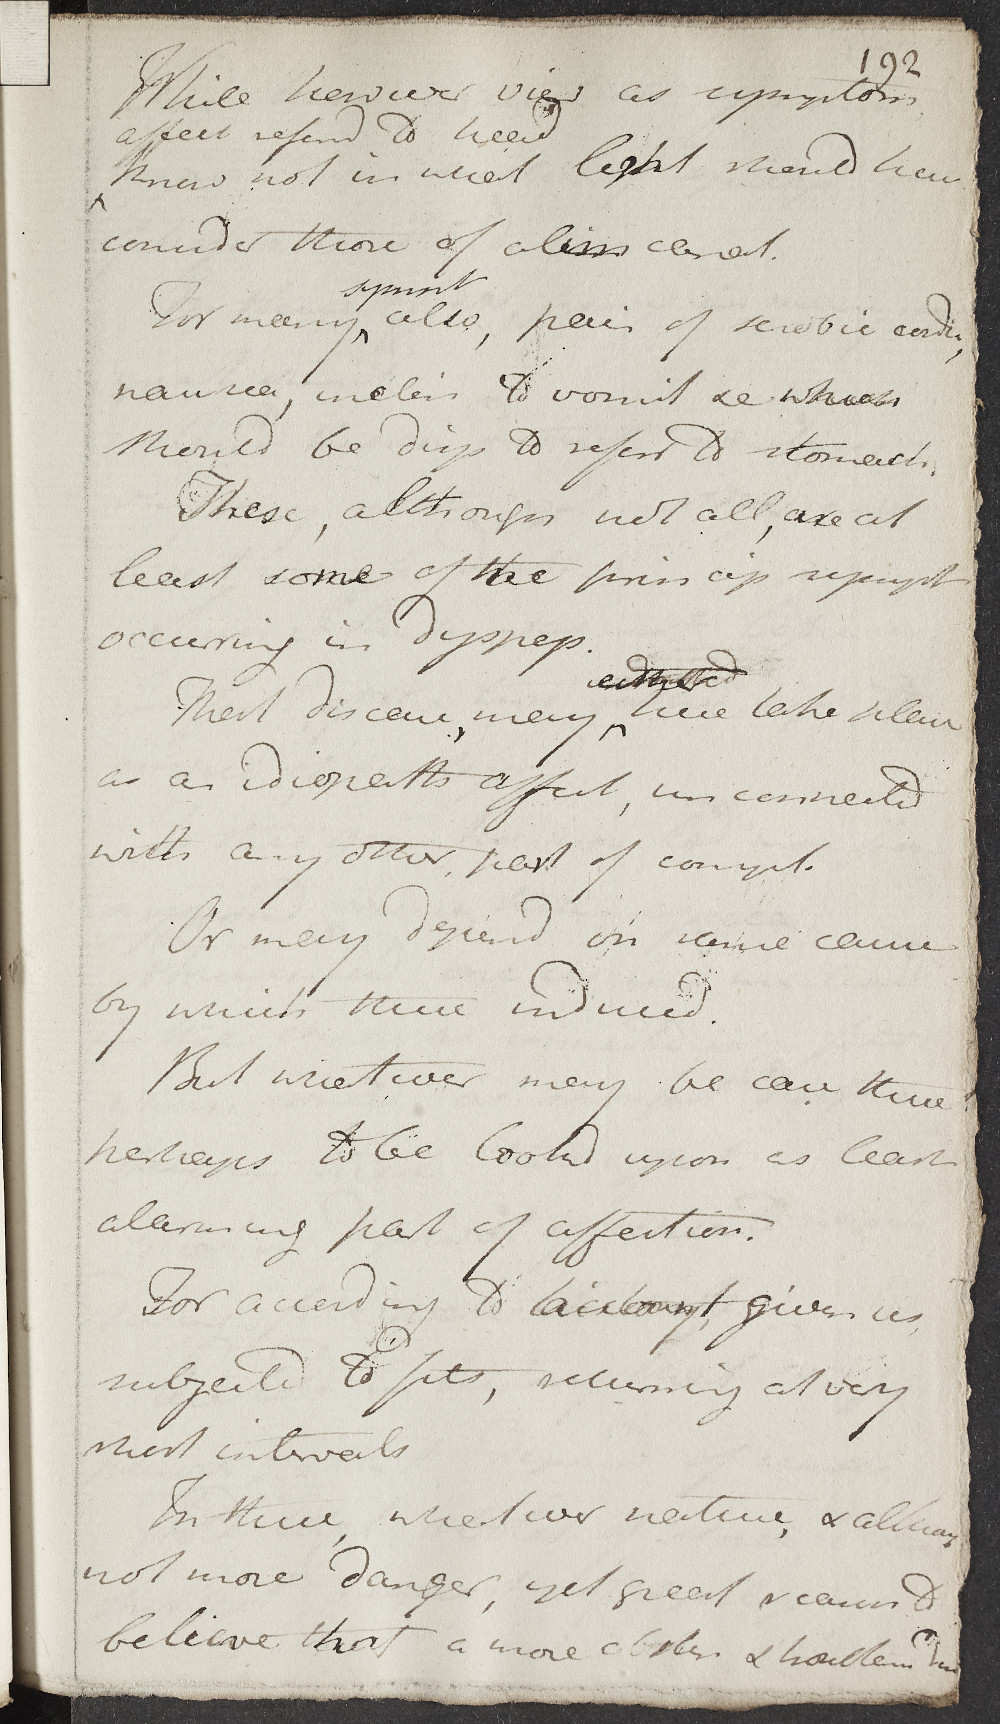 192
While however view as symptom
affect referd to head
know not in what light should have
consider those of alim canal.
sympt
For many also, pain of scrobic cordis,
nausea, inclin to vomit &c which
should be disp to refer to stomach.
These, although not all, are at
least some of the princip sympt
occurring in dyspep.
That disease, may here take place
as an idiopath affect, unconnected
with any other part of compl.
Or may depend on same cause
by which these induced.
But whatever may be case these
perhaps to be looked upon as least
alarming part of affection.
For according to account given us,
subjected to fits, returning at very
short intervals
In these, whatever nature, & althoug
not more danger, yet great reason to
believe that a more obstin &